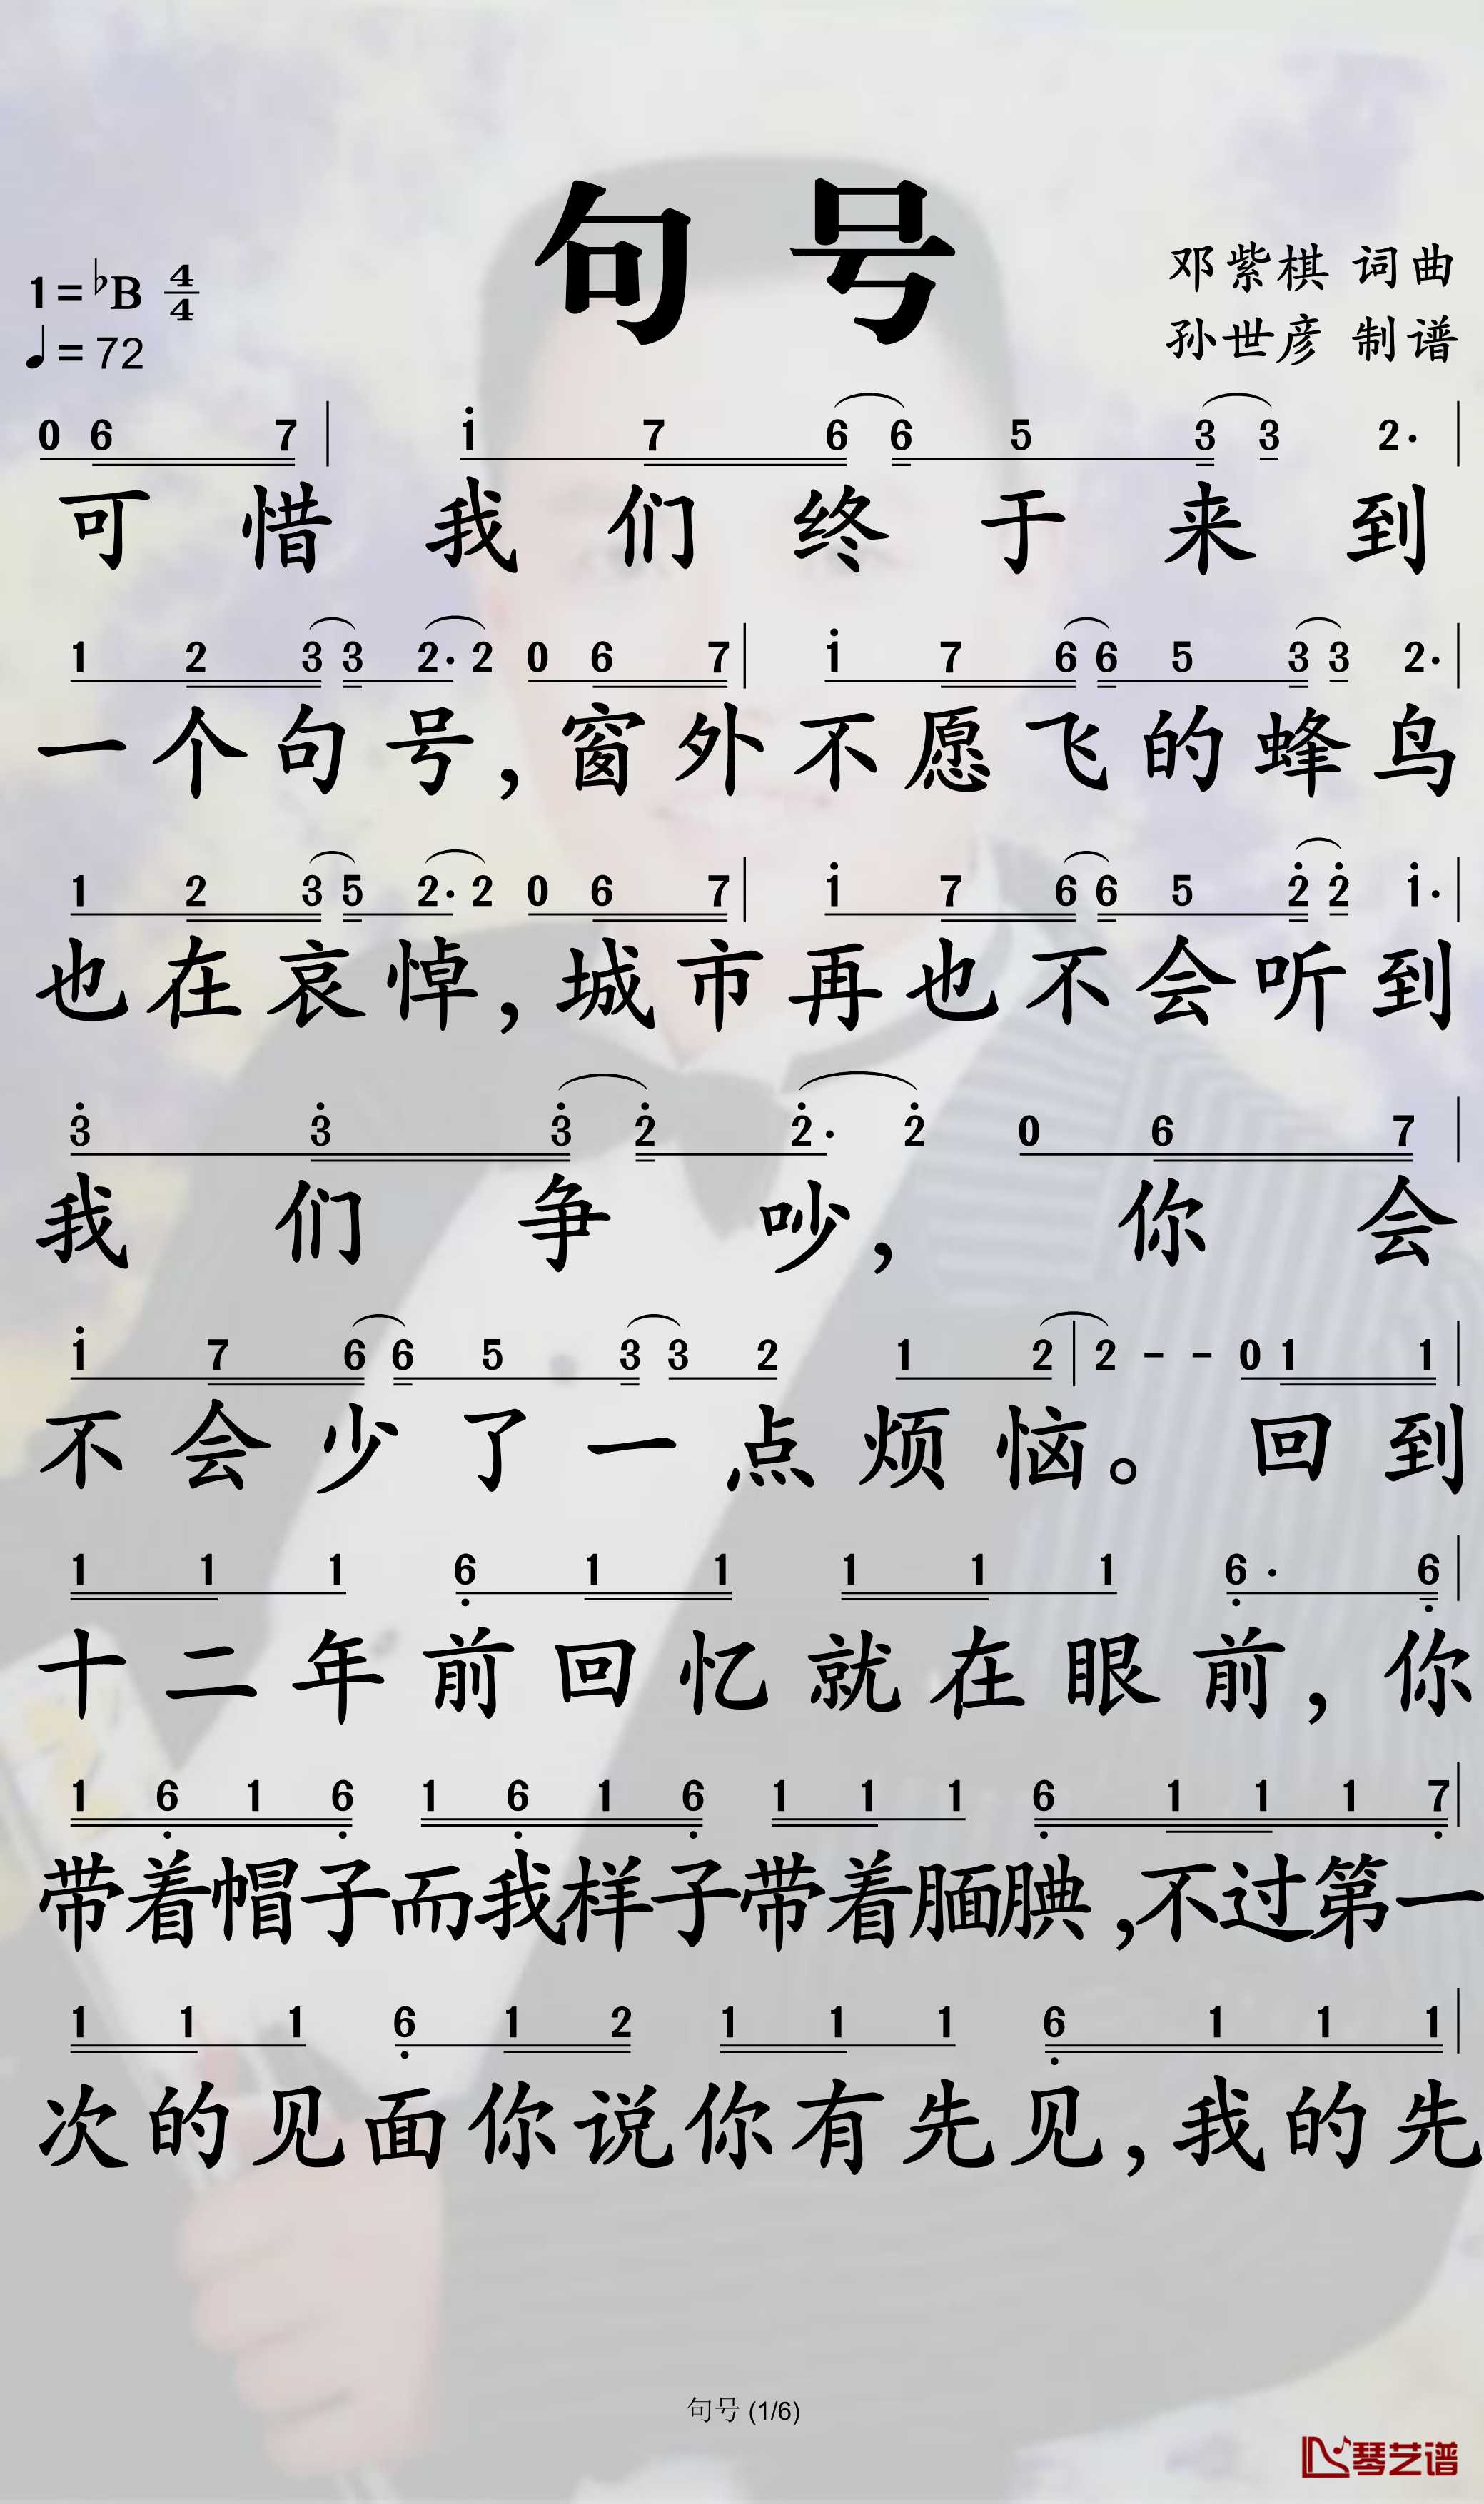 句号
1=♭B 4/4
♩=72
邓紫棋 词曲
孙世彦 制谱
0 6 7 | i 7 6 6 5 3 3 2· |
可惜我们终于来到
1 2 3 3 2· 2 0 6 7 | i 7 6 6 5 3 3 2· |
一个句号,窗外不愿飞的蜂鸟
1 2 3 5 2· 2 0 6 7 | i 7 6 6 5 2̇ 2̇ i· |
也在哀悼,城市再也不会听到
3̇ 3̇ 3̇ 2̇ 2̇· 2̇ 0 6 7 |
我们争吵,你会
i 7 6 6 5 3 3 2 1 2 | 2 - - 0 1 1 |
不会少了一点烦恼。回到
1 1 1 6̣ 1 1 1 1 1 6̣· 6̣ |
十二年前回忆就在眼前,你
1 6̣ 1 6̣ 1 6̣ 1 6̣ 1 1 1 6̣ 1 1 1 7̣ |
带着帽子而我样子带着腼腆,不过第一
1 1 1 6̣ 1 2 1 1 1 6̣ 1 1 1 |
次的见面你说你有先见,我的先
句号 (1/6)
琴艺谱